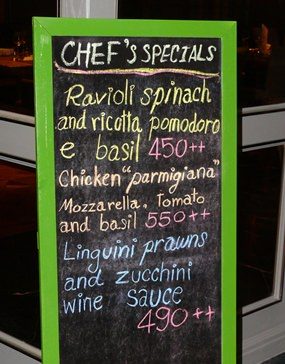 CHEF'S SPECIALS
Ravioli spinach
and ricotta pomodoro
e basil 450++
Chicken "parmigiana"
Mozzarella, Tomato
and basil 550++
Linguini prawns
and zucchini
wine sauce
490++